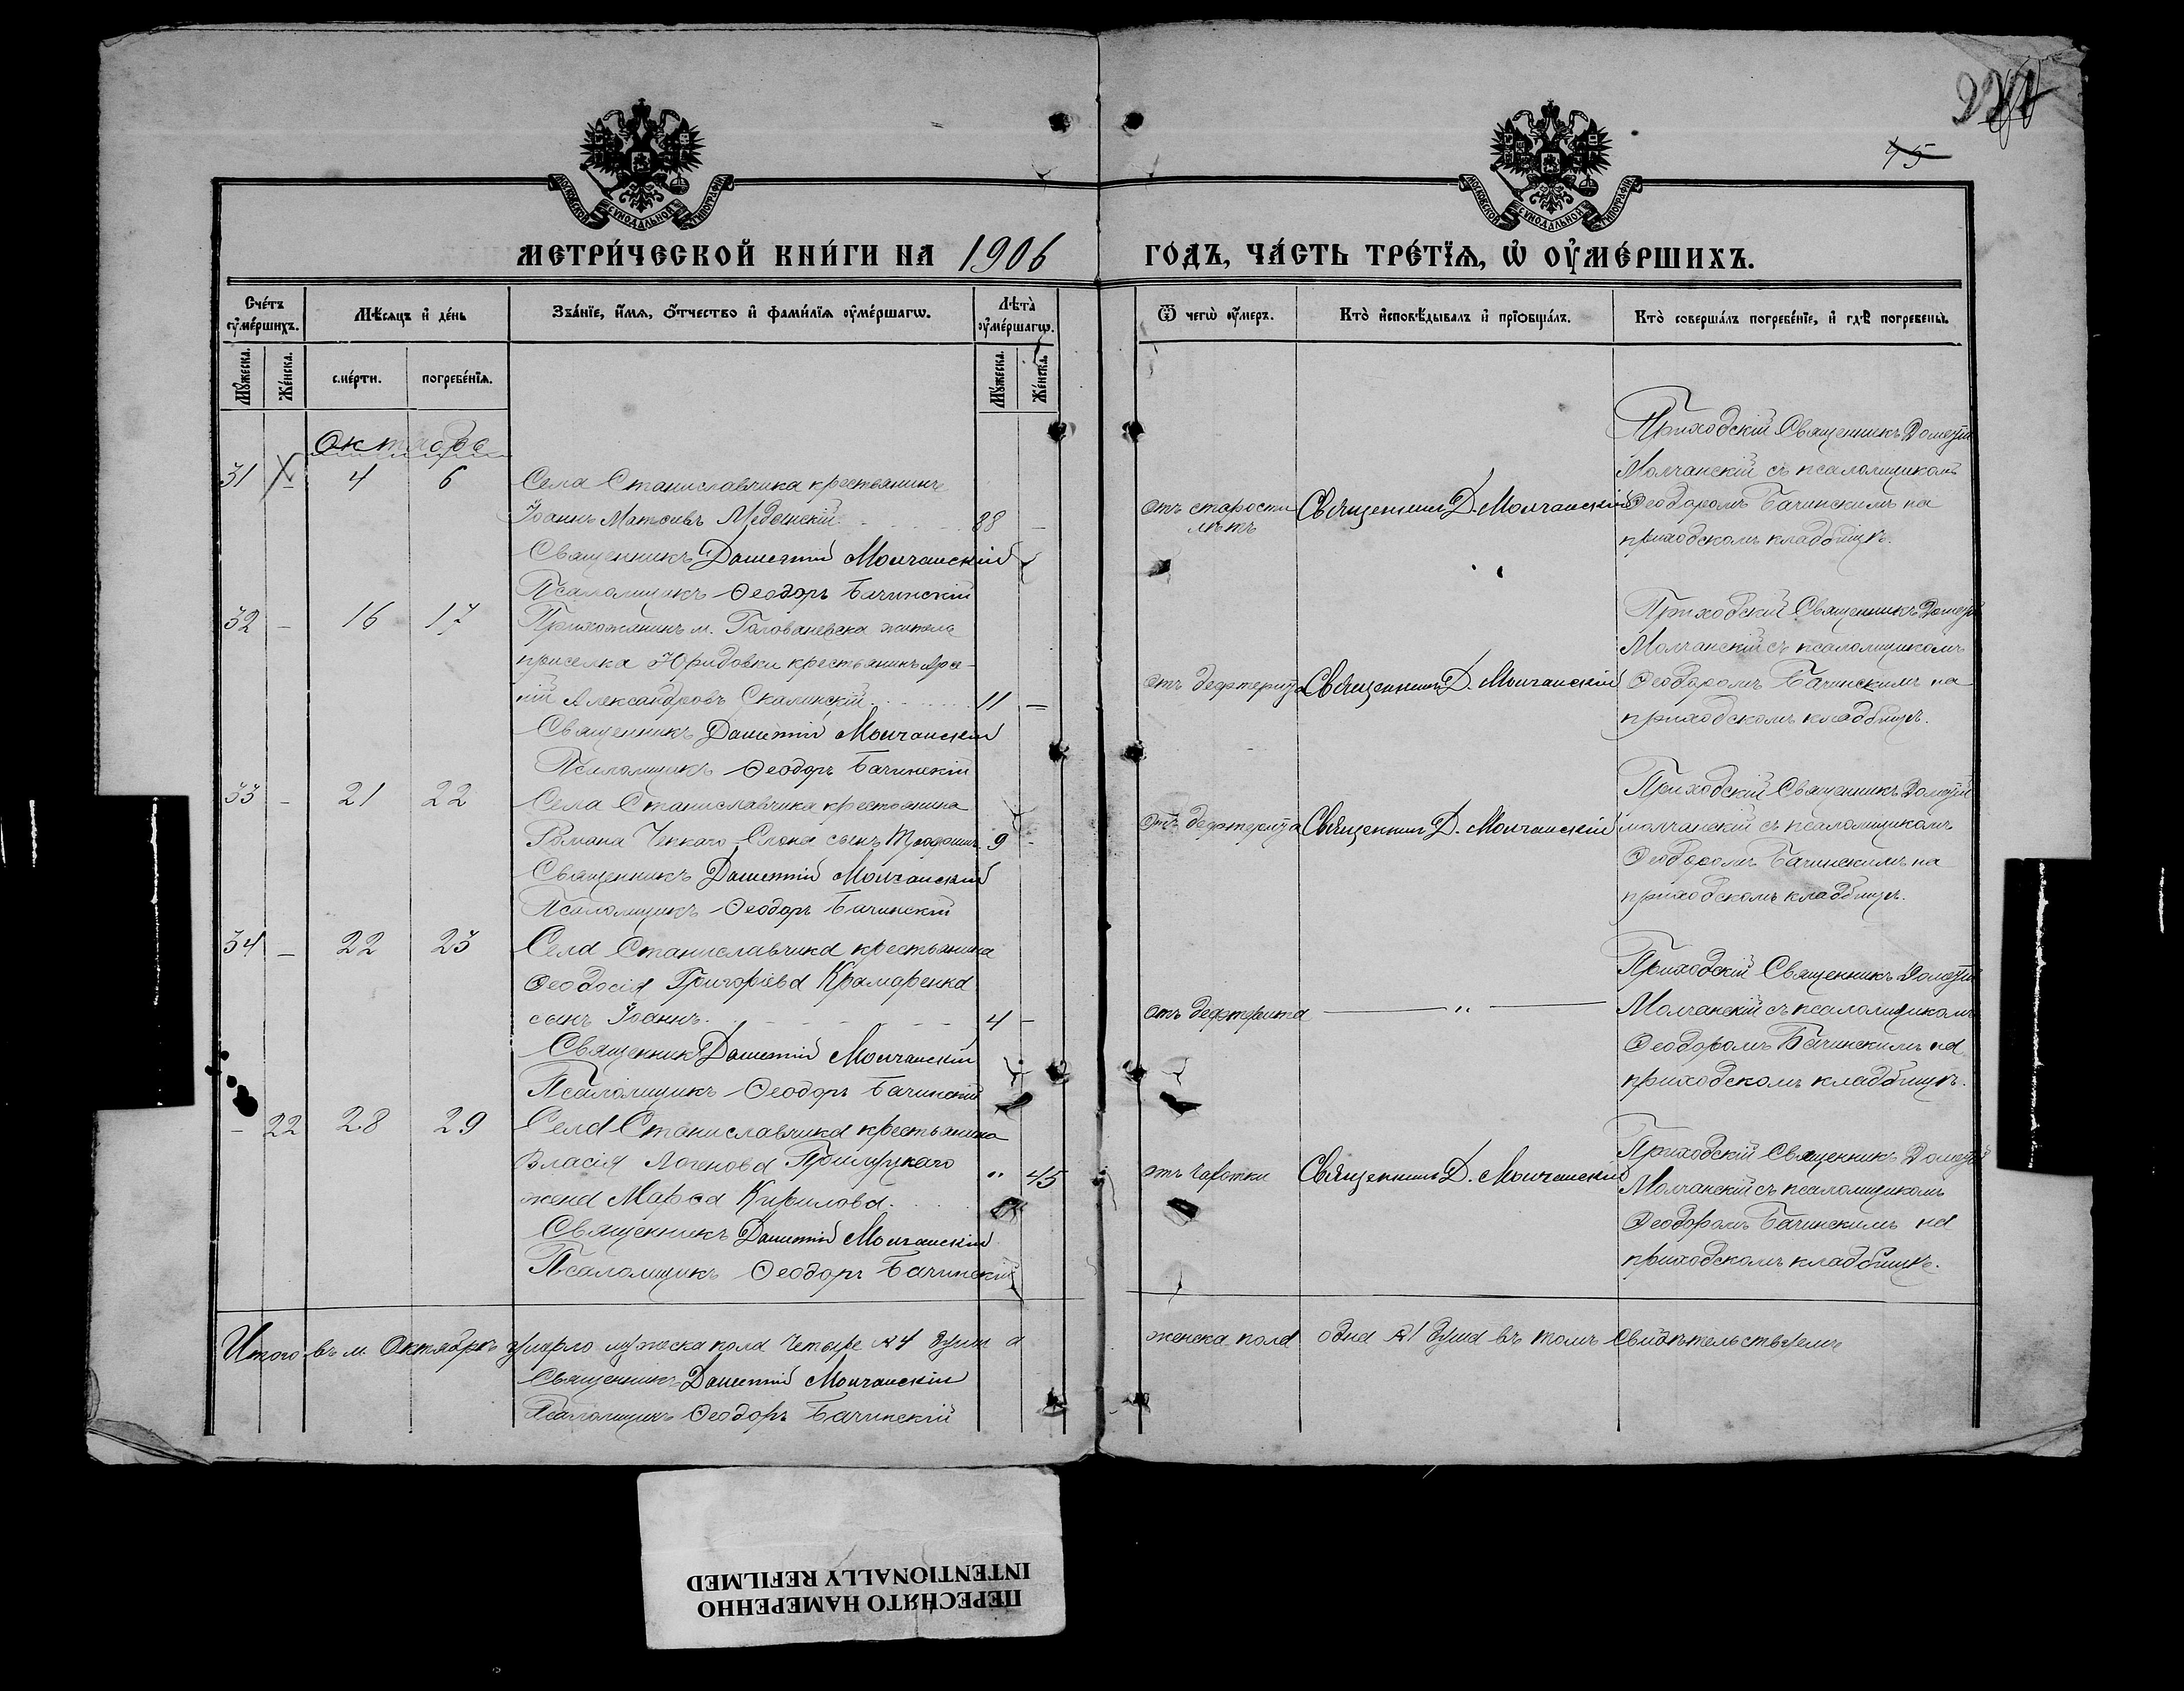 45
МОСКОВСКОЙ СУНОДАЛЬНОЙ ТИПОГРАФІИ
МОСКОВСКОЙ СУНОДАЛЬНОЙ ТИПОГРАФІИ
МЕТРИ́ЧЕСКОЙ КНИ́ГИ НА 1906 ГОДЪ, ЧА́СТЬ ТРЕ́ТІѦ, Ѡ҆ ОУ҆МЕ́РШИХЪ.
Сче́тъ оу҆ме́ршихъ. Мѣ́сяцъ и҆ де́нь Зва́нїе, и҆́мѧ, ѻ҆́тчество и҆ фами́лїѧ оу҆ме́ршагѡ. Лѣта̀ оу҆ме́ршагѡ.
Ѿ чегѡ̀ оу҆́меръ. Кто̀ и҆сповѣ́дывалъ и҆ прїѻбща́лъ. Кто̀ соверша́лъ погребе́нїе, и҆ гдѣ̀ погребены̀.
Му́жеска. Же́нска. сме́рти. погребе́нїѧ. Му́жеска. Же́нска.
Октябрь
31 4 6 Села Станиславчика крестьянинъ
Іоаннъ Матѳіевъ 88 —
Священникъ Дометій Молчанскій
Псаломщикъ Ѳеодоръ Бачинскій
отъ старости лѣтъ
Священникъ Д. Молчанскій
Приходскій Священникъ Дометій
Молчанскій съ псаломщикомъ
Ѳеодоромъ Бачинскимъ на
приходскомъ кладбищѣ.
32 — 16 17 Прихожанинъ м. Голованевска житель
приселка Юридовки крестьянинъ Арсе-
ній Александровъ Скалинскій 11 —
Священникъ Дометій Молчанскій
Псаломщикъ Ѳеодоръ Бачинскій
отъ дефтерита
Священникъ Д. Молчанскій
Приходскій Священникъ Дометій
Молчанскій съ псаломщикомъ
Ѳеодоромъ Бачинскимъ на
приходскомъ кладбищѣ.
33 — 21 22 Села Станиславчика крестьянина
Романа сынъ 9 -
Священникъ Дометій Молчанскій
Псаломщикъ Ѳеодоръ Бачинскій
отъ дефтерита
Священникъ Д. Молчанскій
Приходскій Священникъ Дометій
Молчанскій съ псаломщикомъ
Ѳеодоромъ Бачинскимъ на
приходскомъ кладбищѣ.
34 — 22 23 Села Станиславчика крестьянина
Ѳеодосія Григоріева Крамаренка
сынъ Іоаннъ. 4 —
Священникъ Дометій Молчанскій
Псаломщикъ Ѳеодоръ Бачинскій
отъ дефтерита
— „ —
Приходскій Священникъ Дометій
Молчанскій съ псаломщикомъ
Ѳеодоромъ Бачинскимъ на
приходскомъ кладбищѣ.
— 22 28 29 Села Станиславчика крестьянина
Власія Логенова
жена Марѳа Кирилова. „ 45
Священникъ Дометій Молчанскій
Псаломщикъ Ѳеодоръ Бачинскій
отъ чахотки
Священникъ Д. Молчанскій
Приходскій Священникъ Дометій
Молчанскій съ псаломщикомъ
Ѳеодоромъ Бачинскимъ на
приходскомъ кладбищѣ.
Итого въ м. Октябрѣ умерло мужеска пола четыре №4 души а женска пола одна №1 душа въ томъ свидѣтельствуемъ
Священникъ Дометій Молчанскій
Псаломщикъ Ѳеодоръ Бачинскій
ПЕРЕСНЯТО НАМЕРЕННО
INTENTIONALLY REFILMED